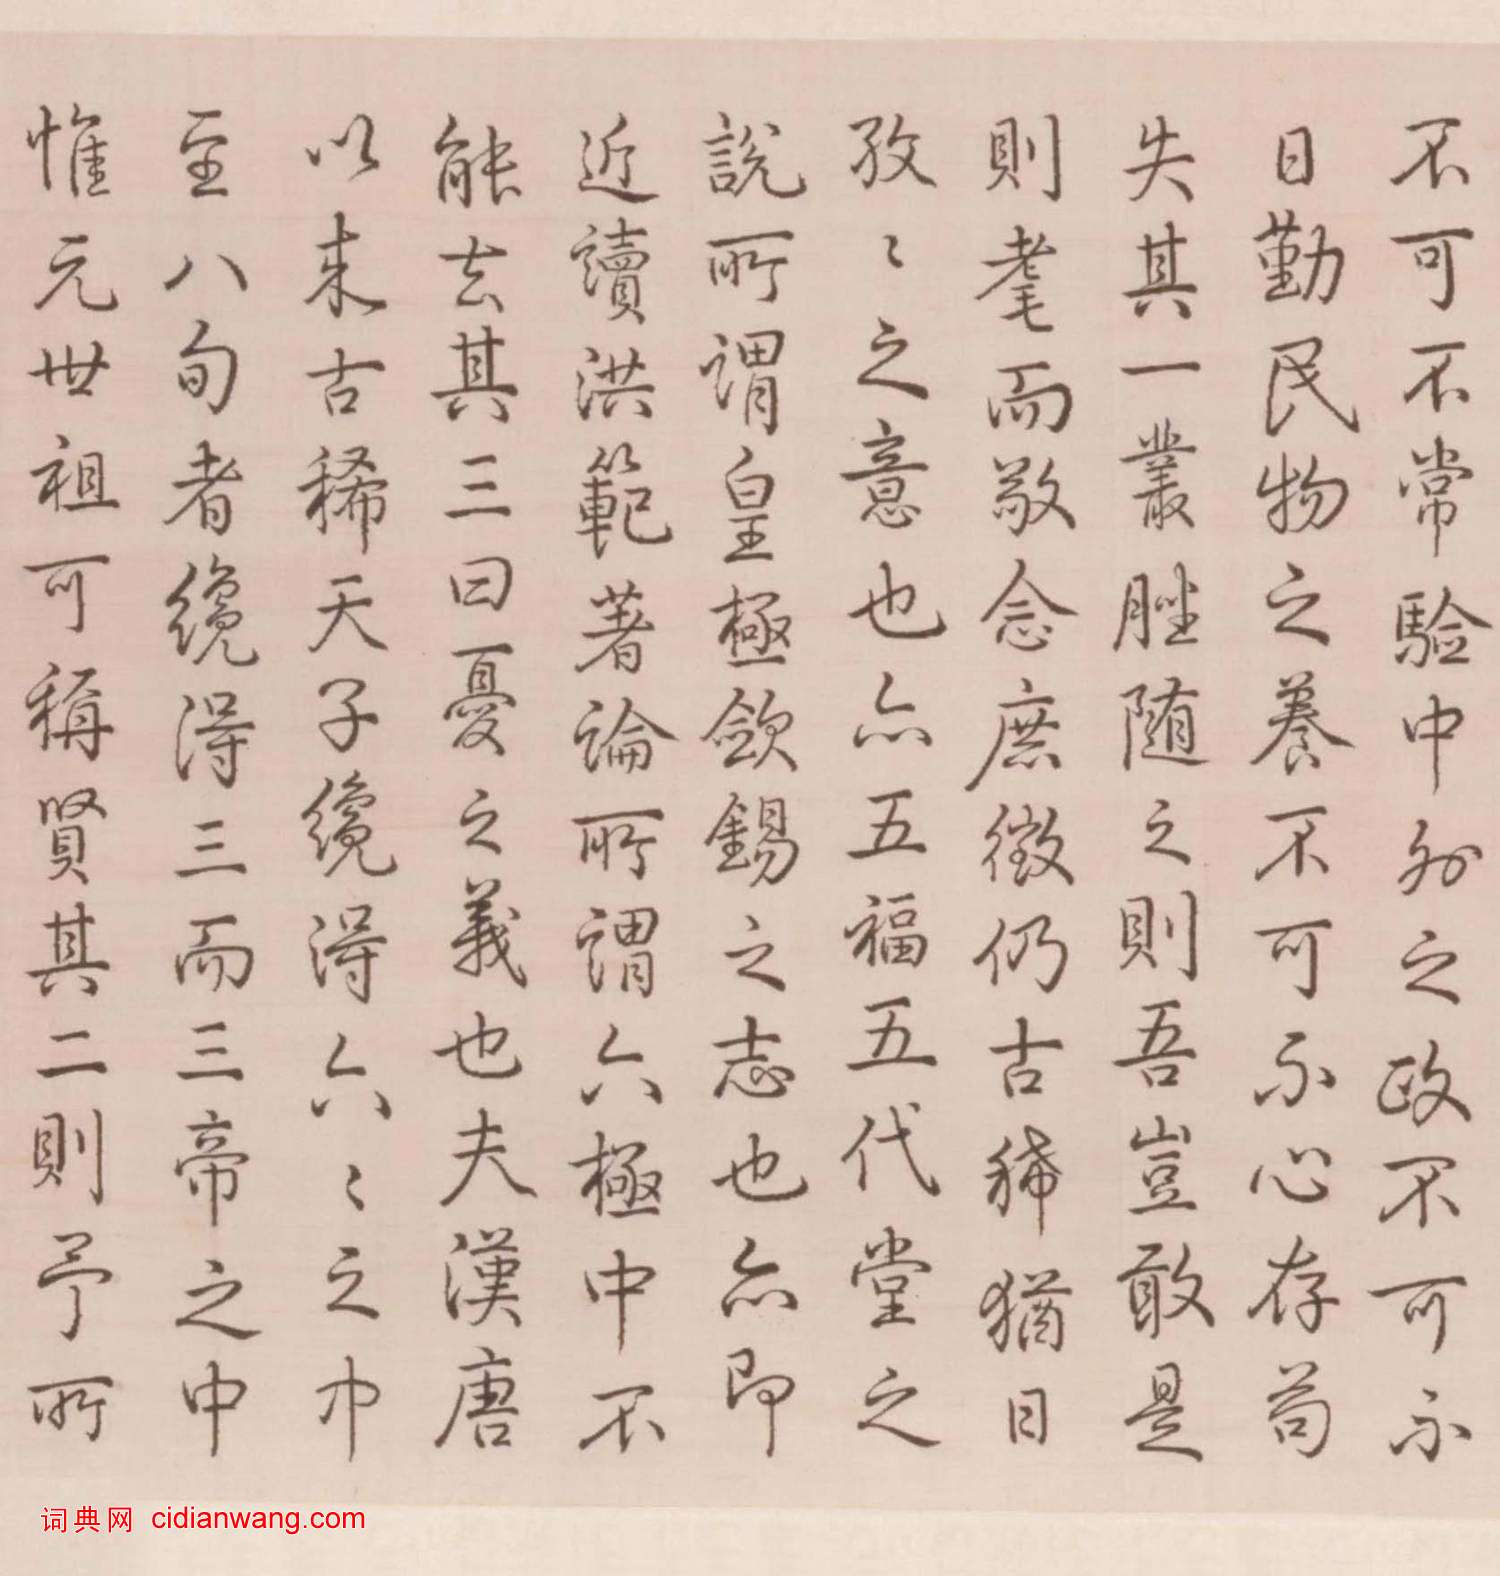 不可不常驗中外之政不可不
日勤民物之養不可不心存苟
失其一叢脞随之則吾豈敢是
則耄而敬念庶徵仍古稀猶日
孜〻之意也亦五福五代堂之
說所謂皇極斂錫之志也亦即
近讀洪範著論所謂六極中不
能去其三曰憂之義也夫漢唐
以来古稀天子纔得六〻之中
至八旬者纔得三而三帝之中
惟元世祖可稱賢其二則予所
词典网 cidianwang.com